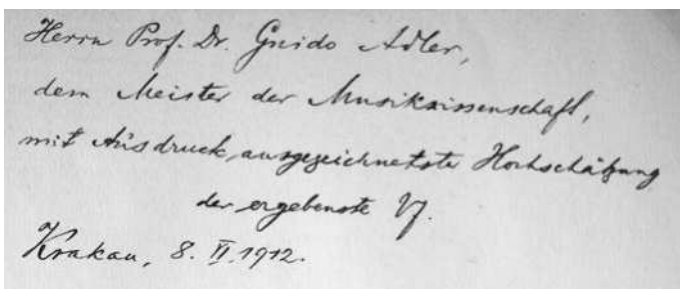 Herrn Prof. Dr. Guido Adler,
dem Meister der Musikwissenschaft,
mit Ausdruck ausgezeichnetste Hochschätzung
der ergebenste Vf.
Krakau, 8. II. 1912.